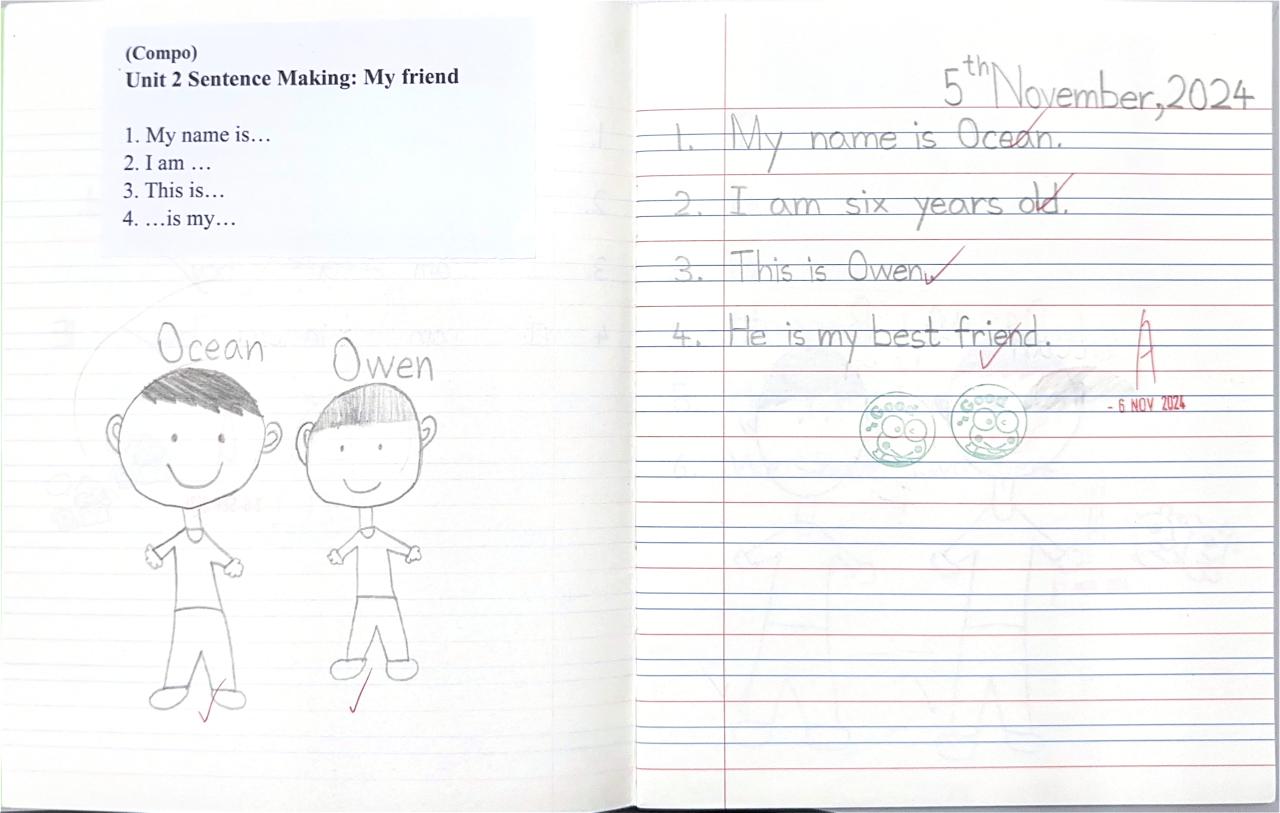 (Compo)
Unit 2 Sentence Making: My friend
1. My name is...
2. I am ...
3. This is...
4. ...is my...
Ocean
Owen
5th November, 2024
1. My name is Ocean.
2. I am six years old.
3. This is Owen.
4. He is my best friend.
A
- 6 NOV 2024
GOOD
GOOD